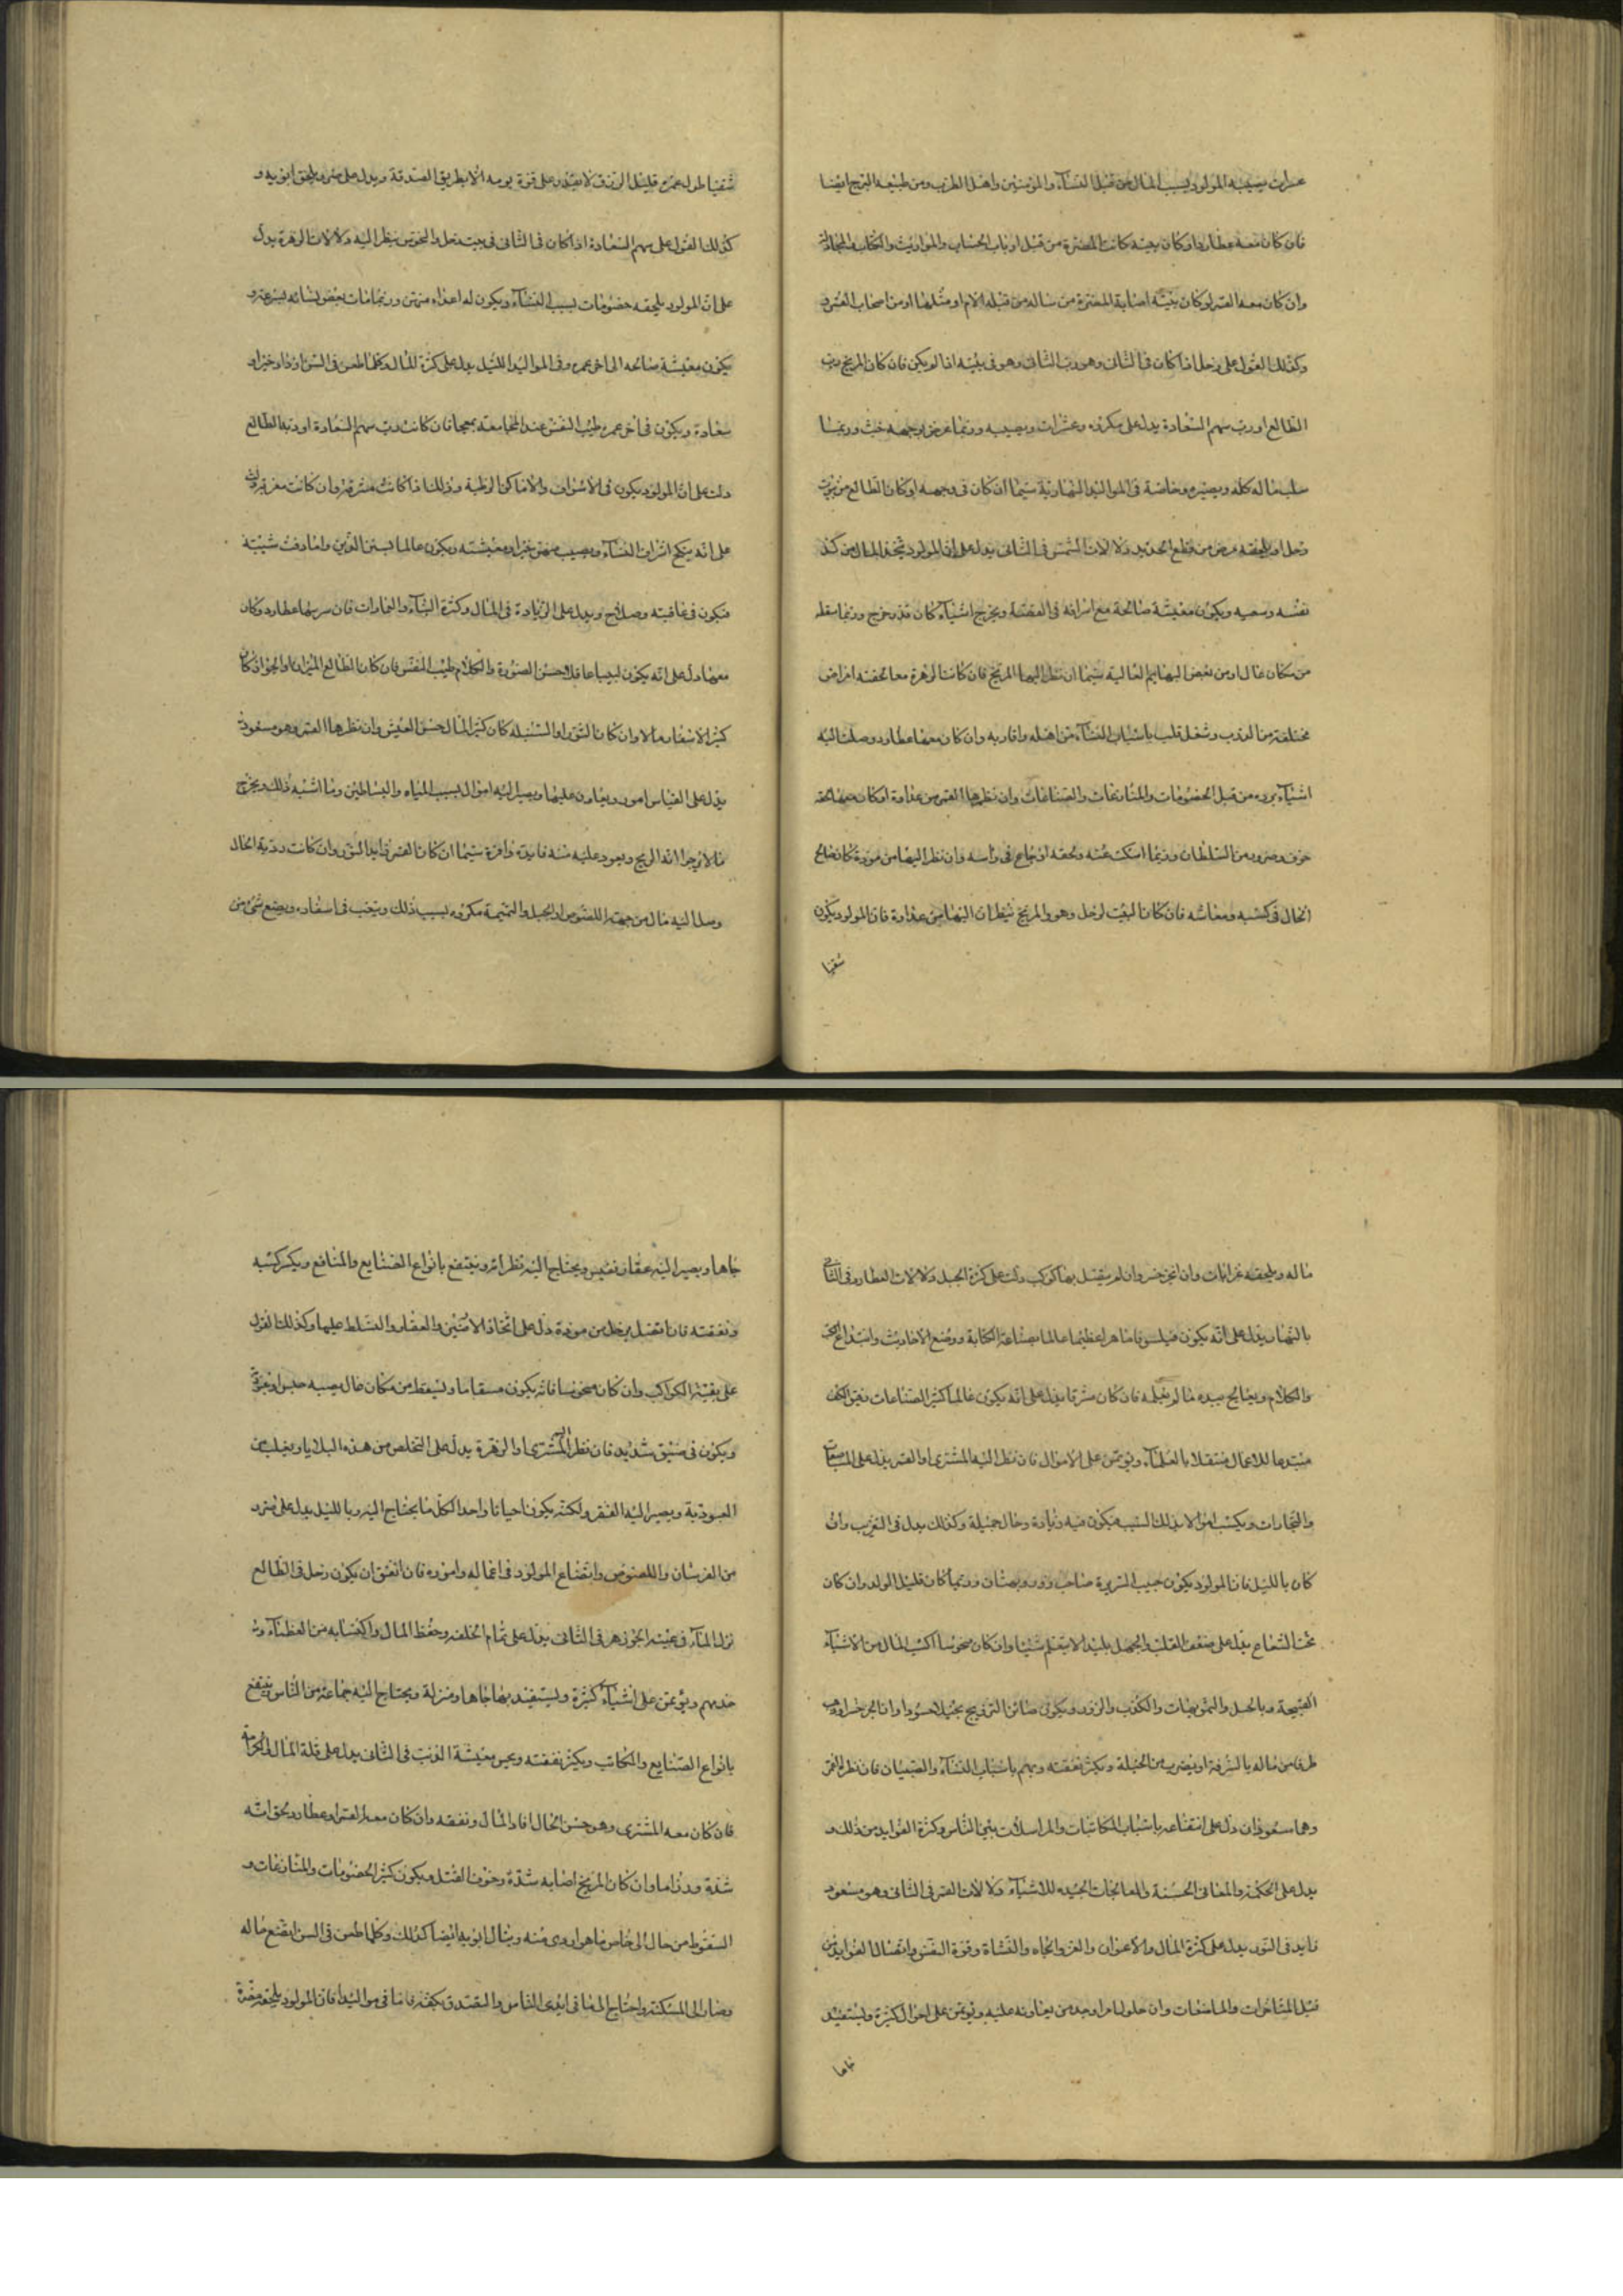 عثرات يصيبه المولود بسبب المال من قبل النساء والمؤنثين واهل الطرب ومن طبيعه البرج ايضا
فان كان معه عطارد او كان بيته كانت المضرة من قبل ارباب الحساب والمواريث والكتابه
وان كان معه القمر او كان بيته اصابة المضرة من ساله من قبله الام او مثلها او من اصحاب
وكذلك القول على زحل اذا كان فى الثانى وهو رب الثانى وهو فى بيته اذا لم يكن فان كان المريخ رب
الطالع او رب سهم السعادة يدل على مكروه وعثرات ويصيبه وربما عرض لوجهه خبث وربما
سلب ماله كله وبصيره وخاصة فى المواليد النهارية سيما ان كان فى وجهه او كان الطالع من بيوت
زحل او يلحقه مرض من قطع الحديد دلالات الشمس فى الثانى يدل على ان المولود يتخذ المال من كد
نفسه وسعيه ويكون معيشة صالحة مع اسرافه فى النفقة ويخرج اشياء كان قد خرج وربما سقط
من مكان عال او من بعض البهايم العالية سيما ان نظر اليها المريخ فان كانت الزهرة معا لحقته امراض
مختلفة من وشغل قلب باسباب النساء من اهله واقاربه وان كان معها عطارد وصلت اليه
اشياء برده من قبل الخصومات والمنازعات والصناعات وان نظرها القمر من عداوة او كان معها لحقه
خوف وضرور من السلطان وربما اسكت عنه ولحقه اوجاع فى راسه وان نظر اليها من مودة كان صالح
الحال فى كسبه ومعاشه فان كان البيت لزحل وهو والمريخ ينظران اليها من عداوة فان المولود يكون
شقيا
شقيا طول عمره قليل الرزق لا يقدر على قوة يومه الا بطريق الصدقة ويدل على ضرر يلحق ابويه و
كذلك القول على سهم السعادة اذا كان فى الثانى فى بيت زحل والنحوس ينظر اليه دلالات الزهرة يدل
على ان المولود يلحقه خصومات بسبب النساء ويكون له اعداء منهن وربما مات بعض نسائه بسرعة و
يكون معيشة صالحه الى اخر عمره وفى المواليد الليل يدل على كثرة المال وكلما طعن فى السن ازداد خيرا و
سعادة ويكون فى اخر عمره طيب النفس عند المجامعة فان كانت رب سهم السعادة او ربة الطالع
دلت على ان المولود يكون فى الاشراف والاماكن الرطبة وذلك اذا كانت مشرقة وان كانت مغربة دلت
على انه ينكح اشراف النساء ويصيب منهن خيرا ومعيشته ويكون عالما وان ادفت شيبته
فيكون فى عافيته وصلاح ويدل على الزيادة فى المال وكثرة البناء والعمارات فان عطارد وكان
معها دل على انه يكون لبيبا عاقلا حسن الصورة والكلام طيب النفس فان كان الطالع الميزان او الجوزا كان
كثير الاسفار مالا وان كان الثور او السنبلة كان كثير المال حسن العيش وان نظرها القمر وهو مسعود
يدل على القياس امور ويعاون عليها ويصير اليه اموال بسبب المياه والبساطين وما اشبه ذلك ويخرج
مالا يرجوا الربح ويعود عليه منه فايدة وافرة سيما ان كان القمر زايد النور وان كانت ردية الحال
وصل اليه مال من جهة اللصوص او الحيل والنميمة مكروه بسبب ذلك ويتعب فى اسفاره ويضع شئ من
ماله ويلحقه غرامات وان وان لم يتصل بها كوكب دلت على كثرة الحيل دلالات العطارد فى الثانى
بالنهار يدل على انه يكون فيلسوفا ماهرا عظيما عالما بصناعة الكتابة ووضع الاحاديث وابتداع
والكلام ويعالج بيده ما لم يعلمه فان كان مشرقا يدل على انه يكون عالما كثير الصناعات
مبتدعا للاعمال متصلا بالعلماء ويؤتمن على الاموال فان نظر اليه المشترى او القمر يدل على
والتجارات ويكسب اموالا بذلك السبب فيكون فيه وزيادة وحال جميلة وكذلك يدل فى التغريب وان
كان بالليل فان المولود يكون خبيث السريرة صاحب زور وبهتان وربما كان قليل الولد وان كان
تحت الشعاع يدل على ضعف القلب والجهل بليد الا يتعلم شيئا وان كان منحوسا اكتسب المال من الاشياء
القبيحة وبالحيل والتمويهات والكذب والزور ويكون التزويج بخيلا حسودا وان خسر او
طرفا من ماله بالسرقة او بضرب من الحيلة ويكثر نفقته ويهتم باسباب النساء والصبيان فان نظر القمر
وهما مسعودان دل على انتفاعه باسباب المكاتبات والمراسلات بين الناس وكثرة الفوايد من ذلك و
يدل على الحكمة والمعانى الحسنة والمعالجات الجيده للاشياء دلالات القمر فى الثانى وهو مسعود
زايد فى النور يدل على كثرة المال والاعوان والعز والجاه والنشاة وقوة النفس واتصال الفوايد من
قبل المتاجرات والمباضعات وان حلول امر اوجد من يعاونه عليه ويؤتمن على احوال كثيرة ويستفيد
جاها
جاها ويصير اليه عقار نفيس ويحتاج اليه نظرائه وينتفع بانواع الصنايع والمنافع ويكثر كسبه
ونفقته فان اتصل بزحل من مودة دل على اتخاذ الارضين والعقار والتسلط عليها وكذلك القول
على بقية الكواكب وان كان منحوسا فانه يكون مسقاما ويسقط من مكان عال يصيبه حبس او غربة
ويكون فى ضيق شديد فان نظر اليه المشترى او الزهرة يدل على التخلص من هذه البلايا ويغلب من
العبودية ويصير اليه الفقر ولكنه يكون احيانا واحدا لكل ما يحتاج اليه وبالليل يدل على ضرر
من الفرسان واللصوص واتضاع المولود فى اعماله واموره فان اتفق ان يكون زحل فى الطالع
الجوزهر فى الثانى يدل على تمام الخلقه وحفظ المال واكتسابه من العظماء و
خدمهم ويؤتمن على اشياء كثيرة ويستفيد بها جاها ومنزلة ويحتاج اليه جماعة من الناس ينتفع
بانواع الصنايع والمكاتب ويكثر نفقته ويحسن معيشة الذنب فى الثانى يدل على قلة المال والحرمة
فان كان معه المشترى وهو حسن الحال افاد المال ونفقه وان كان معه القمر او عطارد لحق امه
شدة وان كان المريخ اصابه شدة وخوف القتل ويكون كثير الخصومات والمنازعات و
السقوط من حال الى خاص ما هو اردى منه وينال ابويه ايضا كذلك وكلما طعن فى السن اتضع حاله
وصار الى المسكنة واحتاج الى ما فى ايدى الناس والتصدق بكفه فاما فى مواليد فان المولود يلحقه مضرة